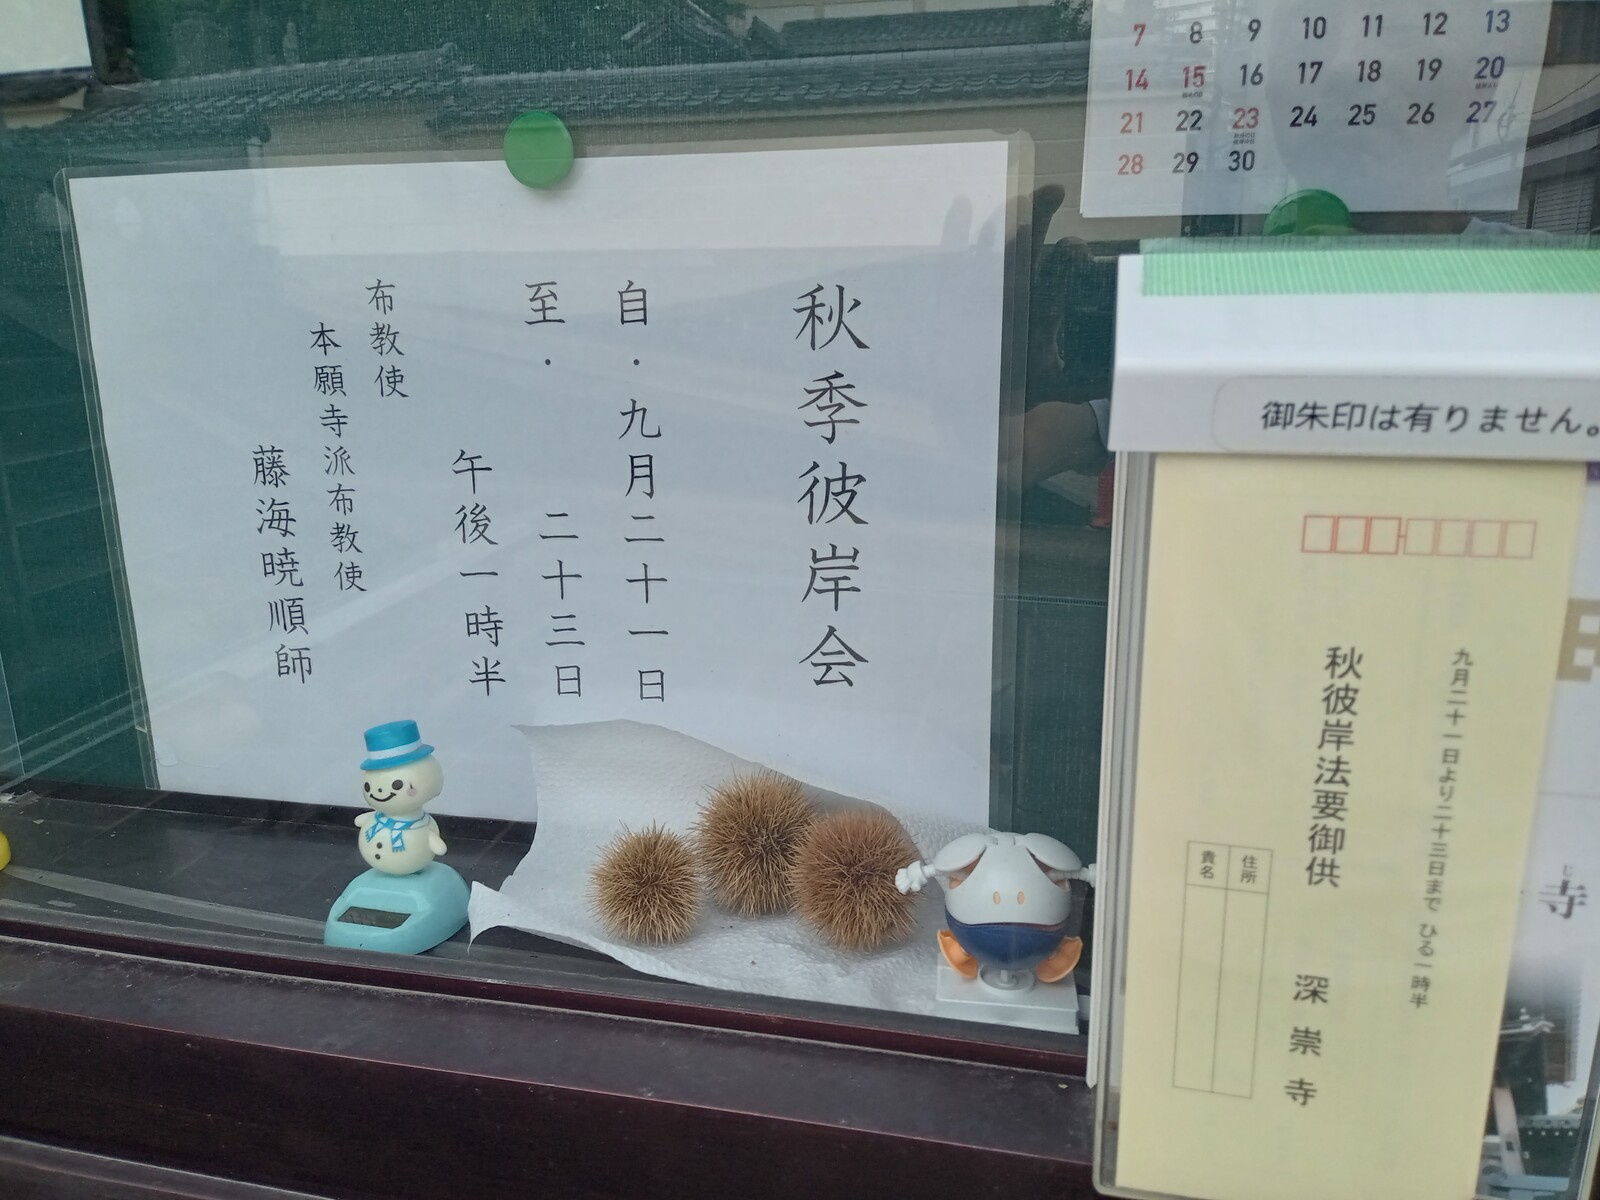 秋季彼岸会
自・九月二十一日
至・　二十三日
午後一時半
布教使
本願寺派布教使
藤海暁順師
7 8 9 10 11 12 13
14 15 16 17 18 19 20
21 22 23 24 25 26 27
28 29 30
御朱印は有りません。
九月二十一日より二十三日まで ひる一時半
秋彼岸法要御供
深崇寺
住所
貴名
じ
寺